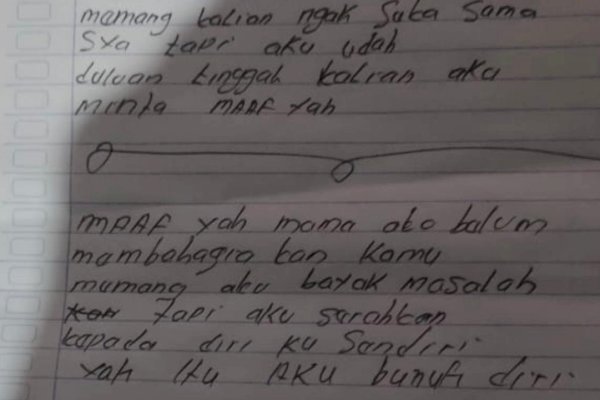 memang kalian ngak Suka Sama
Sya tapi aku udah
duluan tinggah kalian aku
minta MAAF Yah
MAAF yah mama ako balum
mambahagia kan Kamu
mumang aku bayak masalah
Tapi aku sarahkan
kapada diri ku Sandiri
Yah Itu AKU bunuh diri